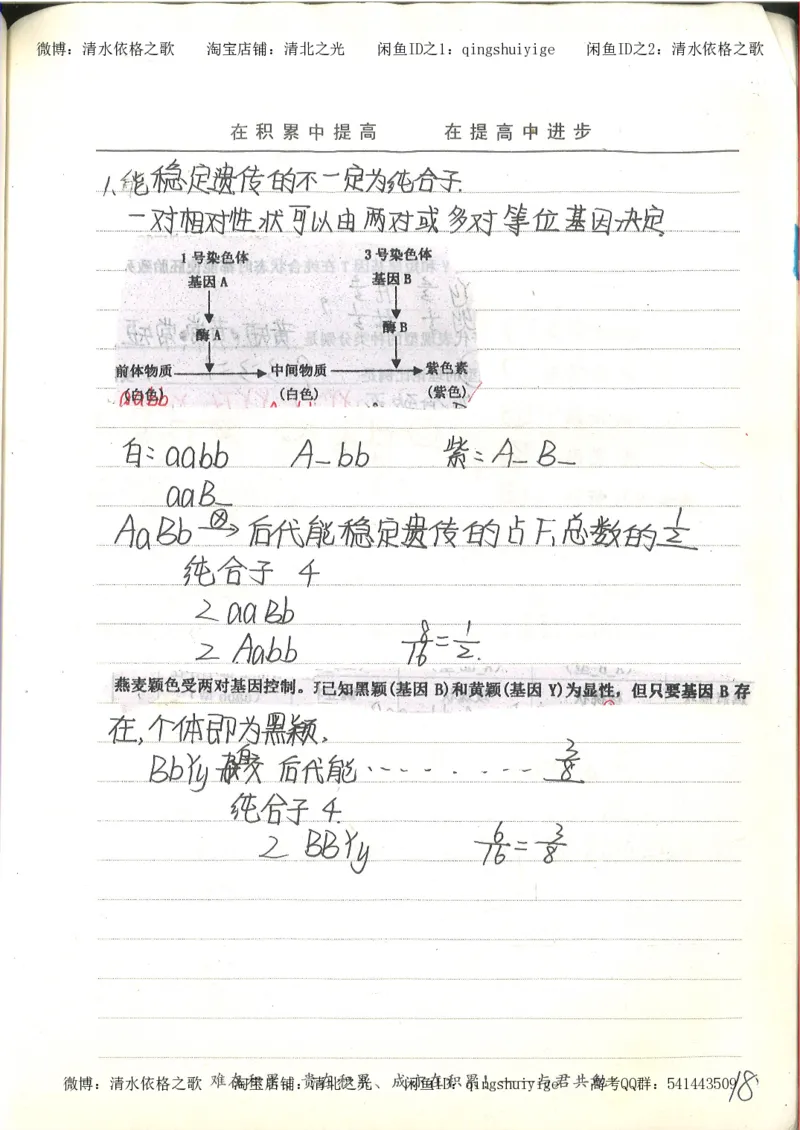 微博：清水依格之歌 淘宝店铺：清北之光 闲鱼ID之1：qingshuiyige 闲鱼ID之2：清水依格之歌
在积累中提高 在提高中进步
1.能稳定遗传的不一定为纯合子.
一对相对性状可以由两对或多对等位基因决定
1号染色体 3号染色体
基因A 基因B
酶A 酶B
前体物质 中间物质 紫色素
(白色) (白色) (紫色)
aabb
白：aabb A_bb 紫：A_B_
aaB_
AaBb ⊗→ 后代能稳定遗传的占F₁总数的 1/2
纯合子 4
2 aaBb
2 Aabb 8/16=1/2.
燕麦颖色受两对基因控制。已知黑颖(基因B)和黄颖(基因Y)为显性，但只要基因B存
在,个体即为黑颖,
BbYy 自交 后代能……… 3/8
纯合子 4.
2 BBYy 6/16=3/8
微博：清水依格之歌 淘宝店铺：清北之光 闲鱼ID：qingshuiyige 高考QQ群：541443509
难在积累、贵在积累、成亦在积累！——与君共勉
18